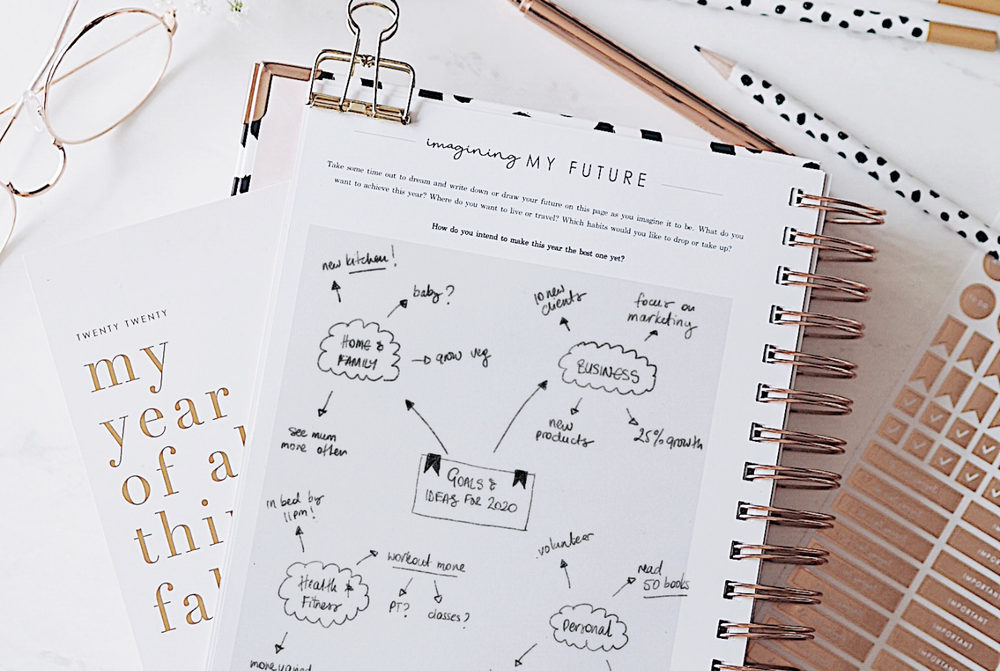 imagining MY FUTURE
Take some time out to dream and write down or draw your future on this page as you imagine it to be. What do you
want to achieve this year? Where do you want to live or travel? Which habits would you like to drop or take up?
How do you intend to make this year the best one yet?
new kitchen!
baby?
HOME &
FAMILY
grow veg
see mum
more often
10 new
clients
focus on
marketing
BUSINESS
new
products
25% growth
GOALS &
IDEAS FOR 2020
in bed by
11pm!
workout more
PT?
classes?
Health &
Fitness
more varied
volunteer
read
50 books
personal
TWENTY TWENTY
my
year
of a
thi
fa
IMPORTANT
IMPORTANT
IMPORTANT
IMPORTANT
IMPORTANT